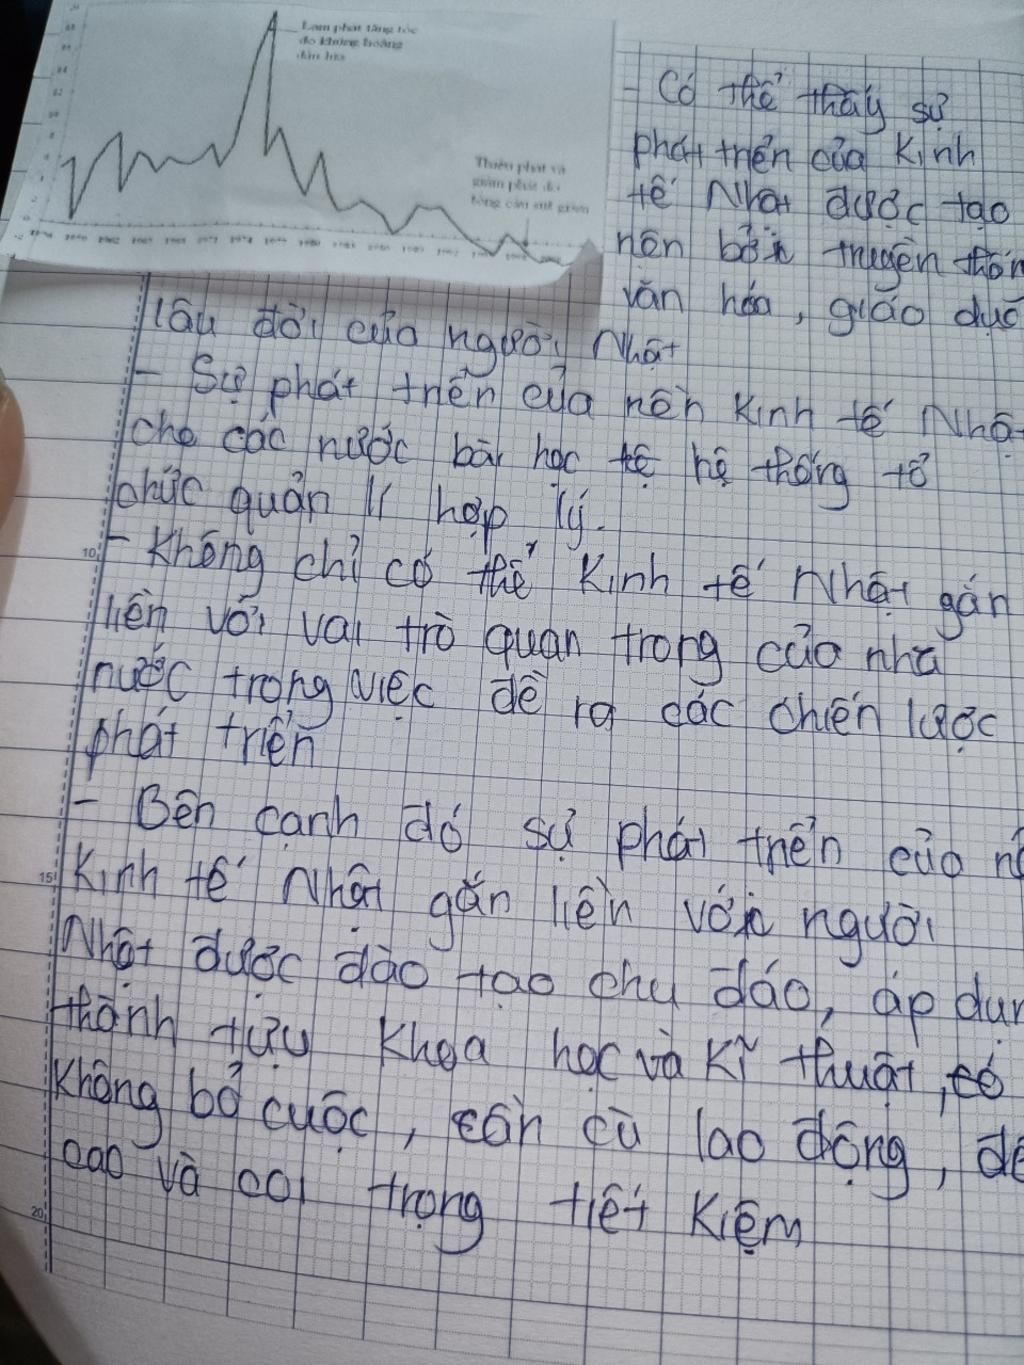 Lạm phát tăng tốc
do khủng hoảng
dầu hỏa
Thiểu phát và
giảm phát do
tổng cầu sút giảm
- Có thể thấy sự
phát triển của Kinh
tế Nhật được tạo
nên bởi truyền thốn
văn hóa, giáo dục
lâu đời của người Nhật
- Sự phát triển của nền Kinh tế Nhậ
cho các nước bài học tệ hệ thống tổ
chức quản lí hợp lý.
10 - Không chỉ có thể Kinh tế Nhật gắn
liền với vai trò quan trong của nhà
nước trong việc đề ra các chiến lược
phát triển
- Bên cạnh đó sự phát triển của n
15 Kinh tế Nhật gắn liền với người
Nhật được đào tạo chu đáo, áp dụn
thành tựu Khoa học và Kĩ thuật, có
Không bỏ cuộc, cần cù lao động, đề
cao và coi trọng tiết Kiệm
20